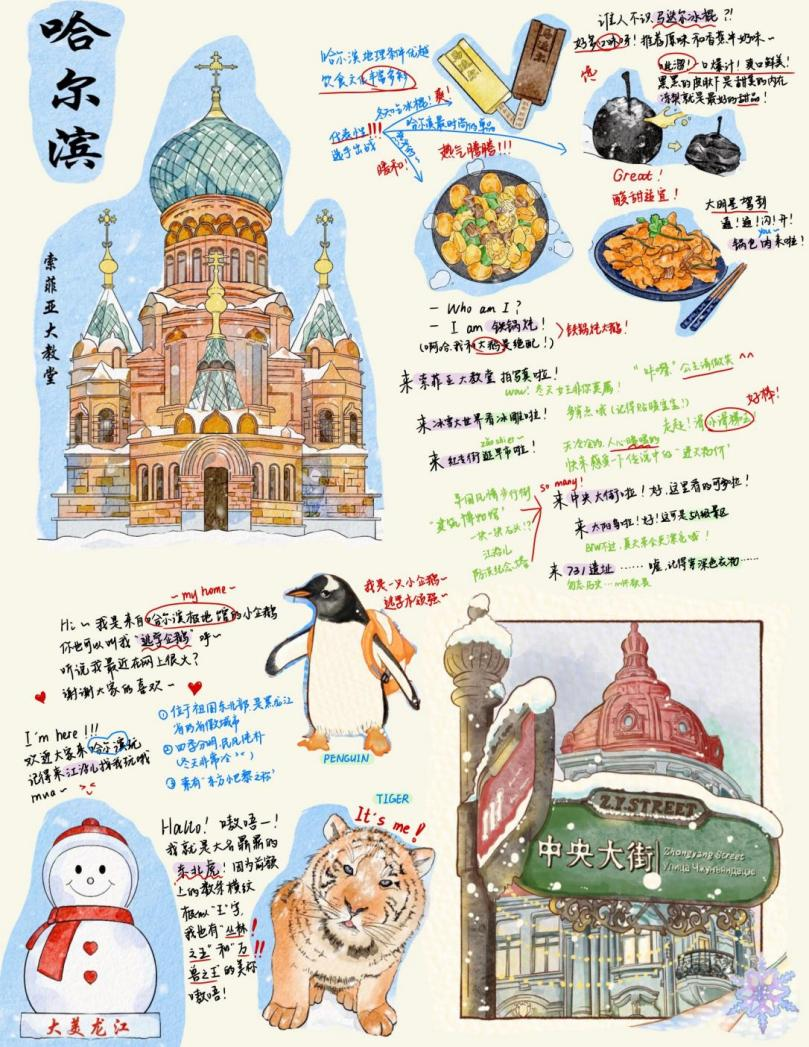 哈尔滨
索菲亚大教堂
哈尔滨地理条件优越
饮食文化丰富多彩
代表性!!!
选手出战
冬天吃冰棍!爽!
哈尔滨最时尚的单品
暖和!
热气腾腾!!!
马迭尔
谁人不识马迭尔冰棍?!
好多口味呀!推荐原味和香蕉牛奶味~
馋
吸溜!一口爆汁!爽口鲜美!
黑黑的皮肤下是甜美的内在
冻梨就是最好的甜品!
Great!
酸甜适宜!
大明星驾到
通!通!闪!开!
you~
锅包肉来啦!
- Who am I?
- I am 铁锅炖!
(啊哈,我和大鹅是绝配!)
铁锅炖大鹅!
来索菲亚大教堂 拍写真啦!
"咔嚓"公主请微笑 ^^
wow!冬天女王非你莫属!
来冰雪大世界看冰雕啦!
多穿点哦(记得贴暖宝宝!)
好棒!
走起!滑小滑梯去!
zǎo shier~
来红专街逛早市啦!
天冷冷的,人心暖暖的
快来感受一下传说中的"通天物价"
so many!
早国风情步行街
"建筑博物馆"
一块一块石头!?
江沿儿
防洪纪念塔
来中央大街啦!好,这里看的可多啦!
来太阳岛啦!好!这可是5A级景区
BTW不过,夏天来会更漂亮哦!
来731遗址……嘘,记得穿深色衣物……
勿忘历史……
~my home~
Hi~ 我是来自哈尔滨极地馆的小企鹅
你也可以叫我"逃学企鹅"呼~
听说我最近在网上很火?
谢谢大家的喜欢~
我是一只小企鹅~
逃学术顽强~
I'm here !!!
欢迎大家来哈尔滨玩
记得来江沿儿找我玩哦
mua~
① 位于祖国东北部,是黑龙江
省的省徽城市
② 四季分明,民风淳朴
(冬天非常冷~)
③ 素有"东方小巴黎之称"
PENGUIN
TIGER
It's me!
Hallo!嗷唔一!
我就是大名鼎鼎的
东北虎!因为前额
上的数条横纹
极似"王"字,
我也有"丛林
之王"和"万
兽之王"的美称
嗷唔!
大美龙江
Z.Y.STREET
中央大街
Zhongyang Street
Улица Чжунъяндацзе